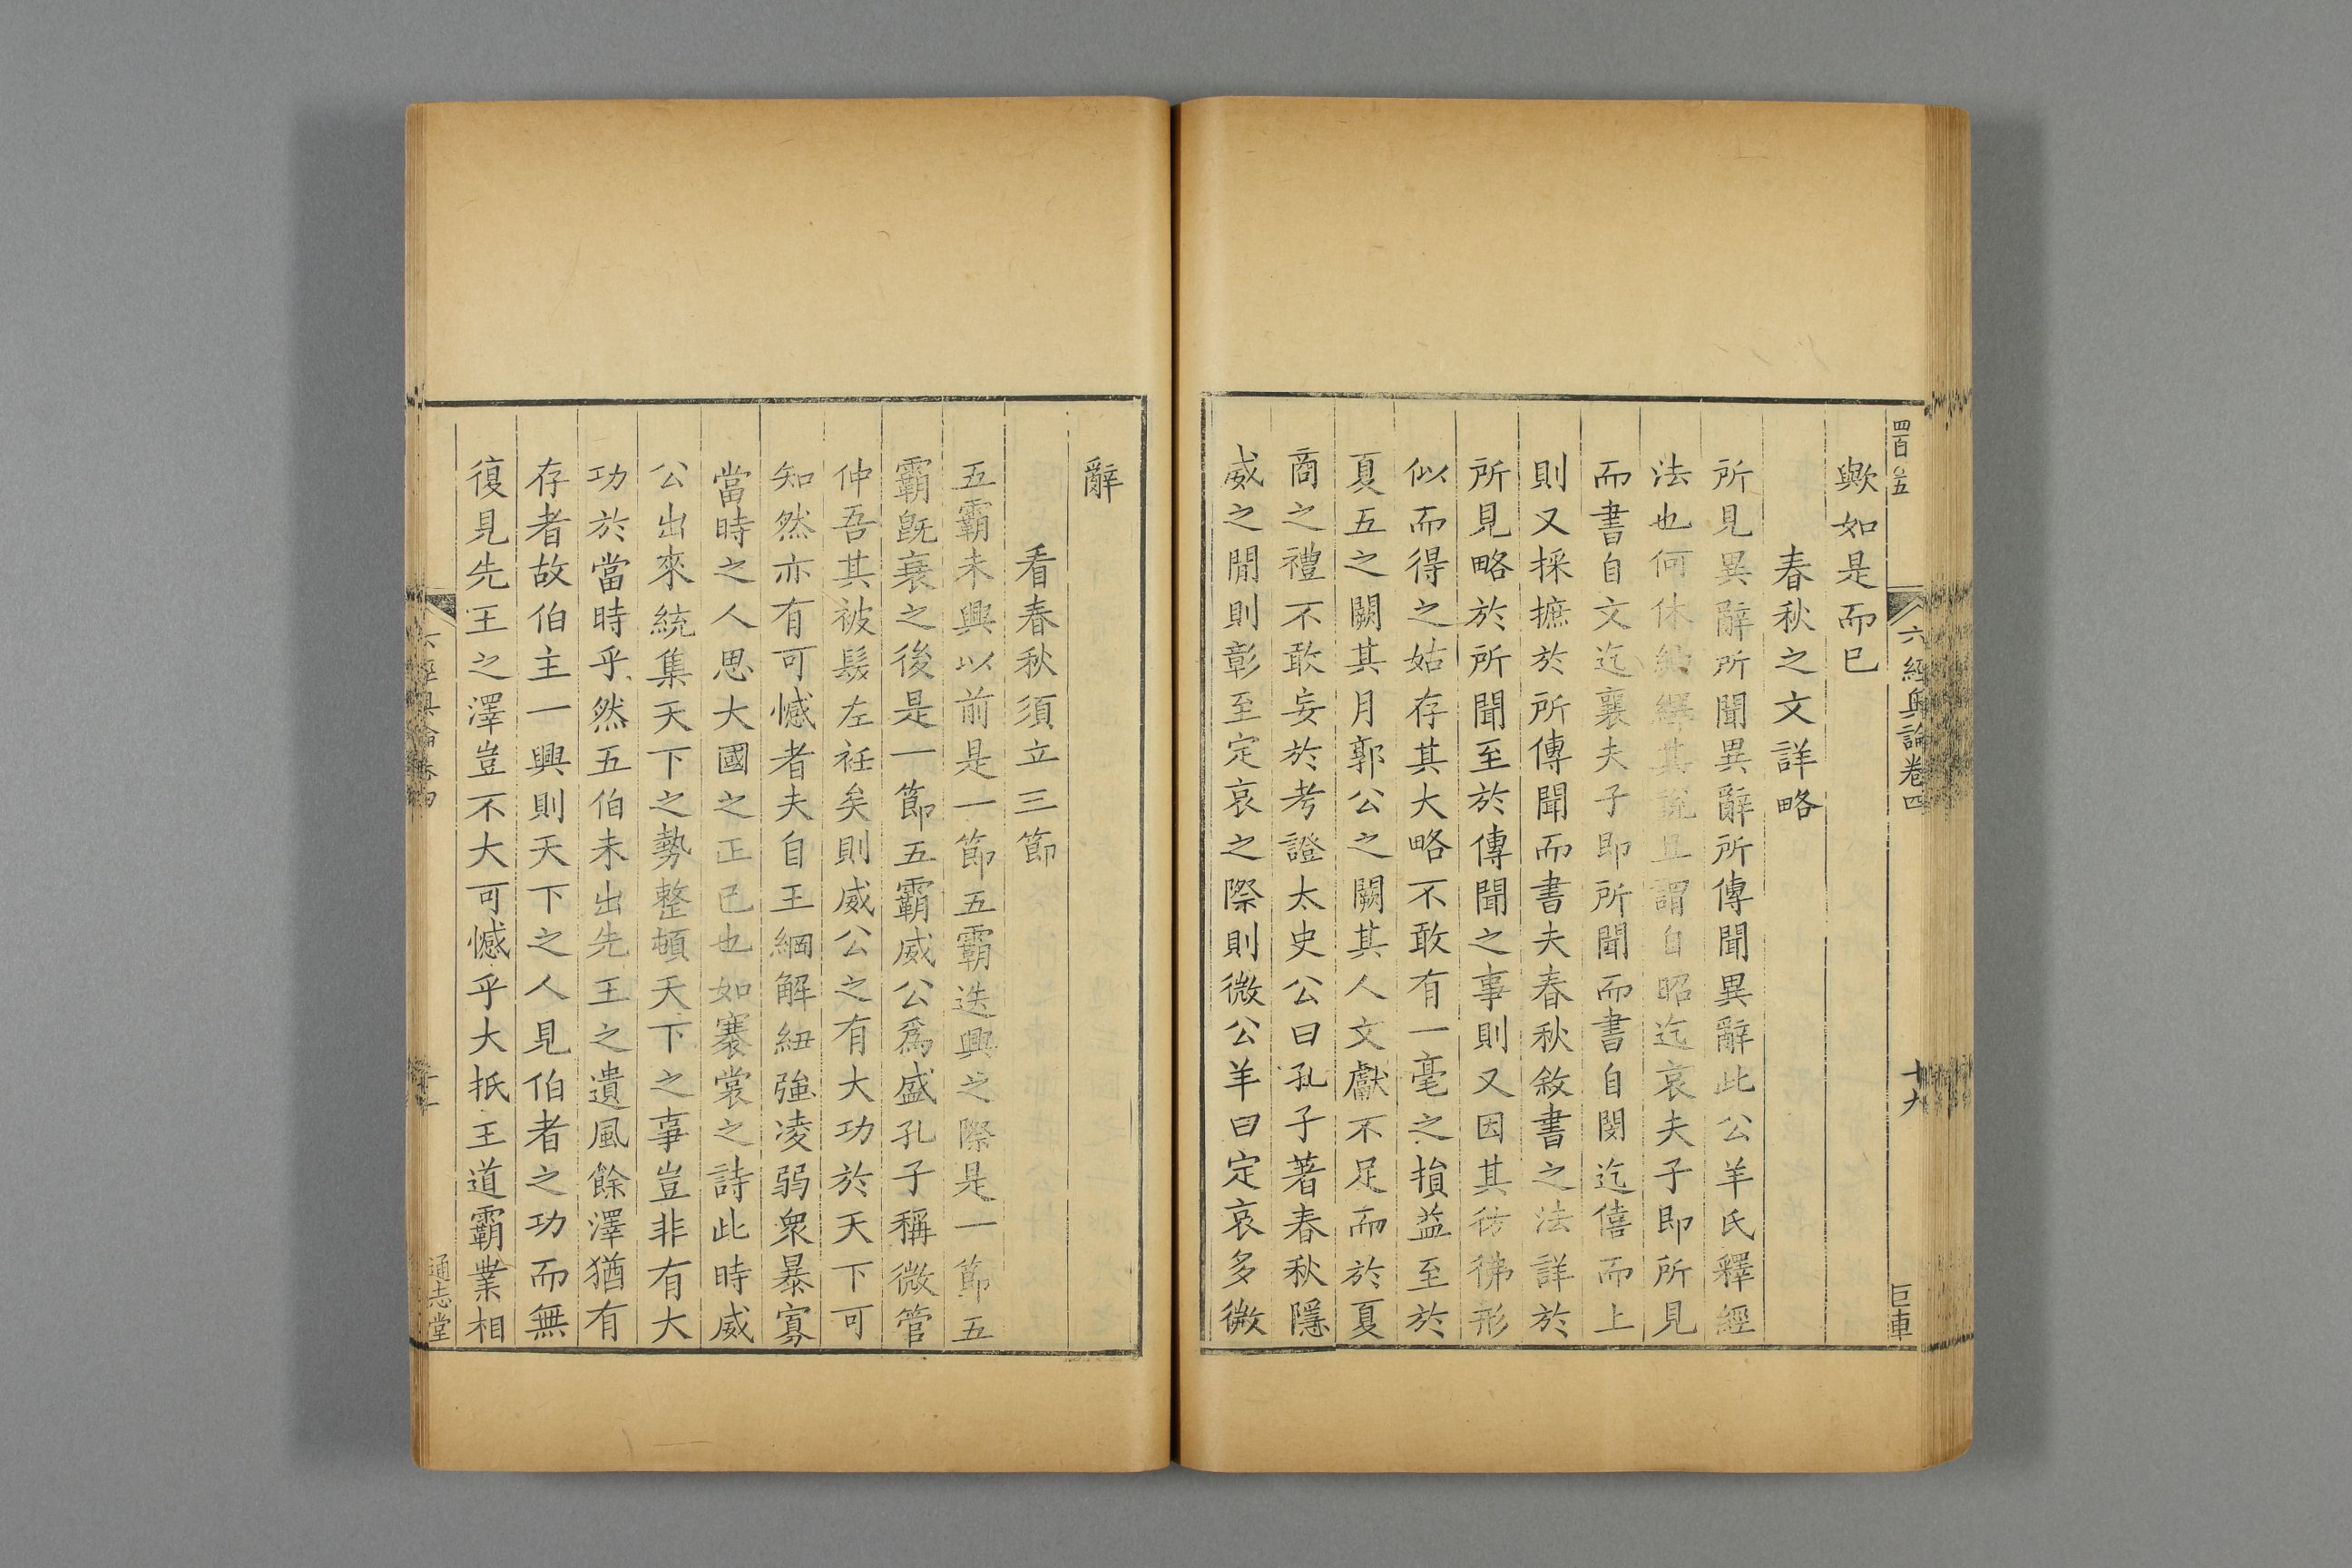 四百五
六經奥論卷四
十九
巨車
歟如是而已
春秋之文詳略
所見異辭所聞異辭所傳聞異辭此公羊氏釋經
法也何休紬繹其說且謂自昭迄哀夫子即所見
而書自文迄襄夫子即所聞而書自閔迄僖而上
則又採摭於所傳聞而書夫春秋敘書之法詳於
所見略於所聞至於傳聞之事則又因其彷彿形
似而得之姑存其大略不敢有一毫之損益至於
夏五之闕其月郭公之闕其人文獻不足而於夏
商之禮不敢妄於考證太史公曰孔子著春秋隱
威之閒則彰至定哀之際則微公羊曰定哀多微
辭
看春秋須立三節
五霸未興以前是一節五霸迭興之際是一節五
霸既衰之後是一節五霸威公爲盛孔子稱微管
仲吾其被髮左衽矣則威公之有大功於天下可
知然亦有可憾者夫自王綱解紐強凌弱衆暴寡
當時之人思大國之正已也如褰裳之詩此時威
公出來統集天下之勢整頓天下之事豈非有大
功於當時乎然五伯未出先王之遺風餘澤猶有
存者故伯主一興則天下之人見伯者之功而無
復見先王之澤豈不大可憾乎大抵王道霸業相
六經奥論卷四
通志堂